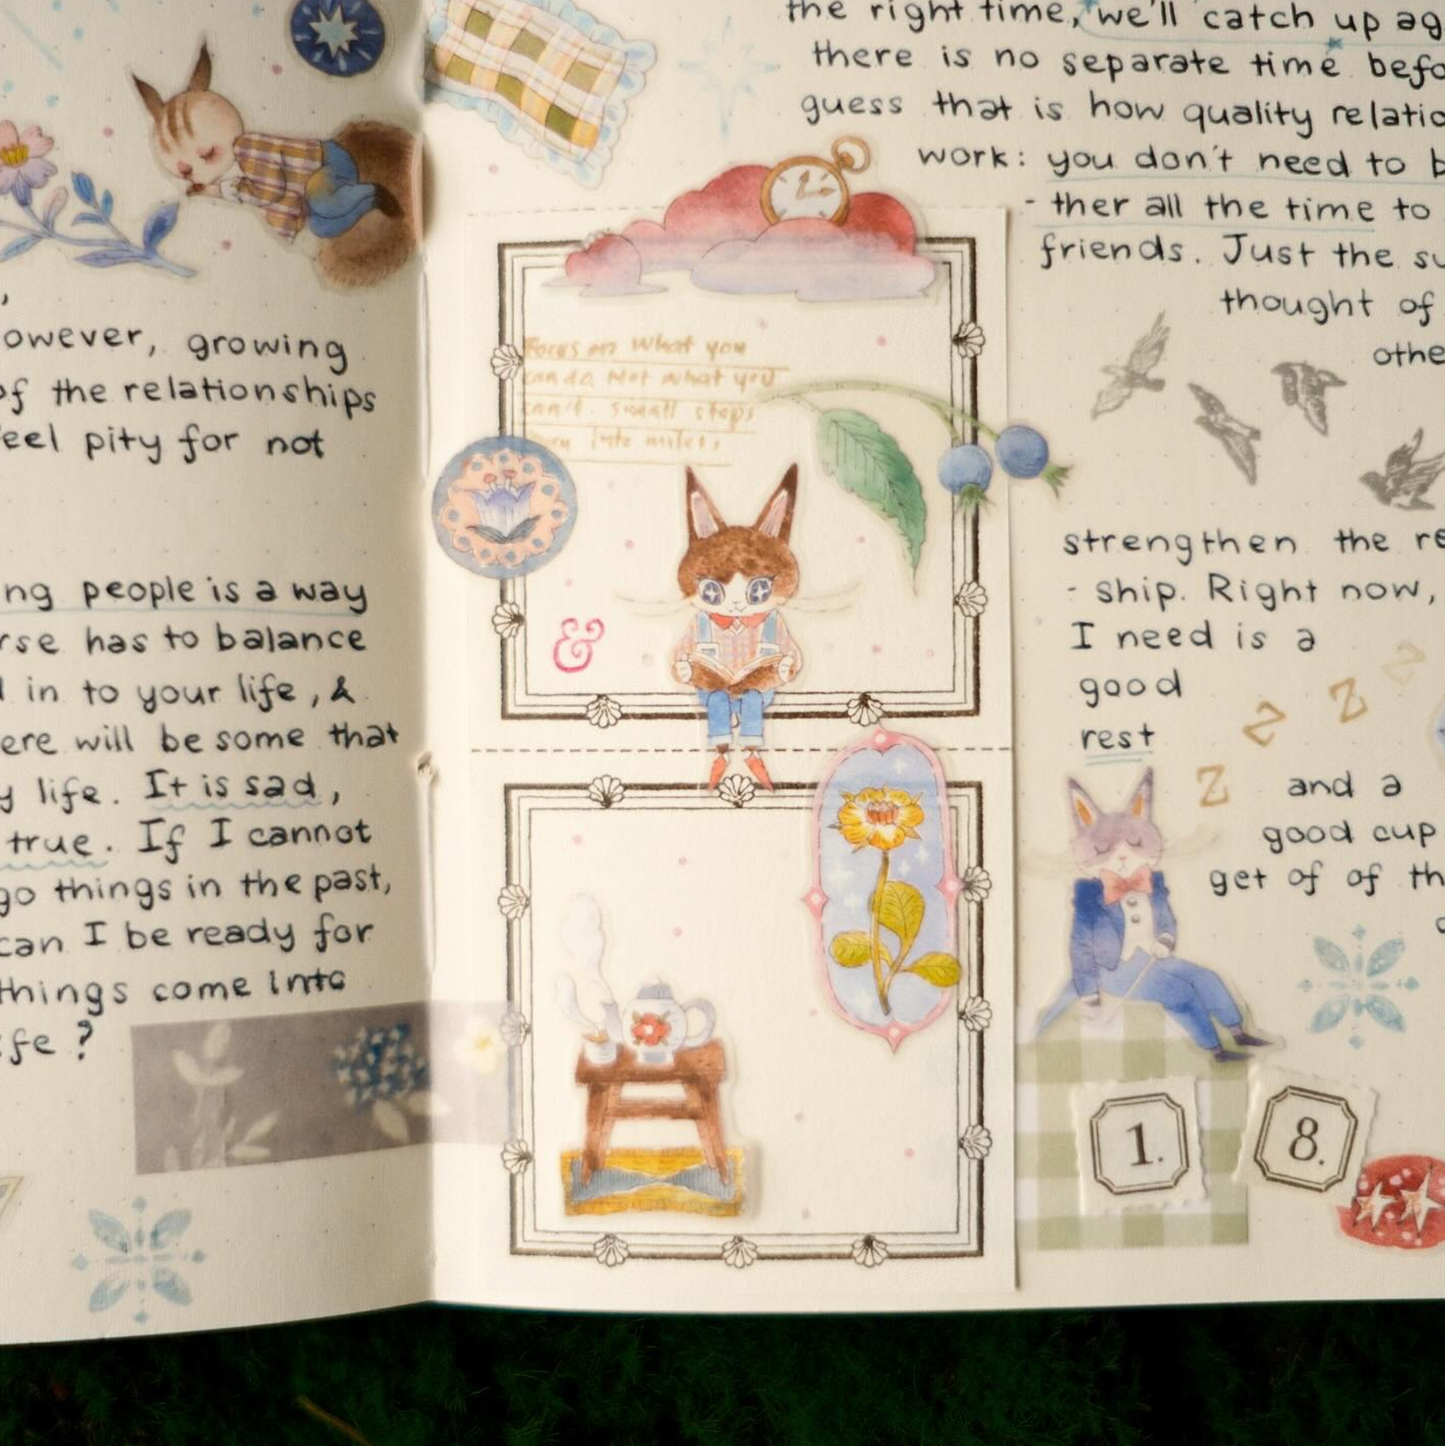 owever, growing
of the relationships
eel pity for not
ng people is a way
rse has to balance
in to your life, &
ere will be some that
y life. It is sad,
true. If I cannot
go things in the past,
can I be ready for
things come into
fe?
Focus on what you
can do. Not what you
can't. small steps
turn into miles.
&
the right time, we'll catch up ag
there is no separate time befo
guess that is how quality relatio
work: you don't need to b
- ther all the time to
friends. Just the su
thought of
othe
strengthen the re
- ship. Right now,
I need is a
good
rest
Z Z Z Z
and a
good cup
get of of th
1. 8.